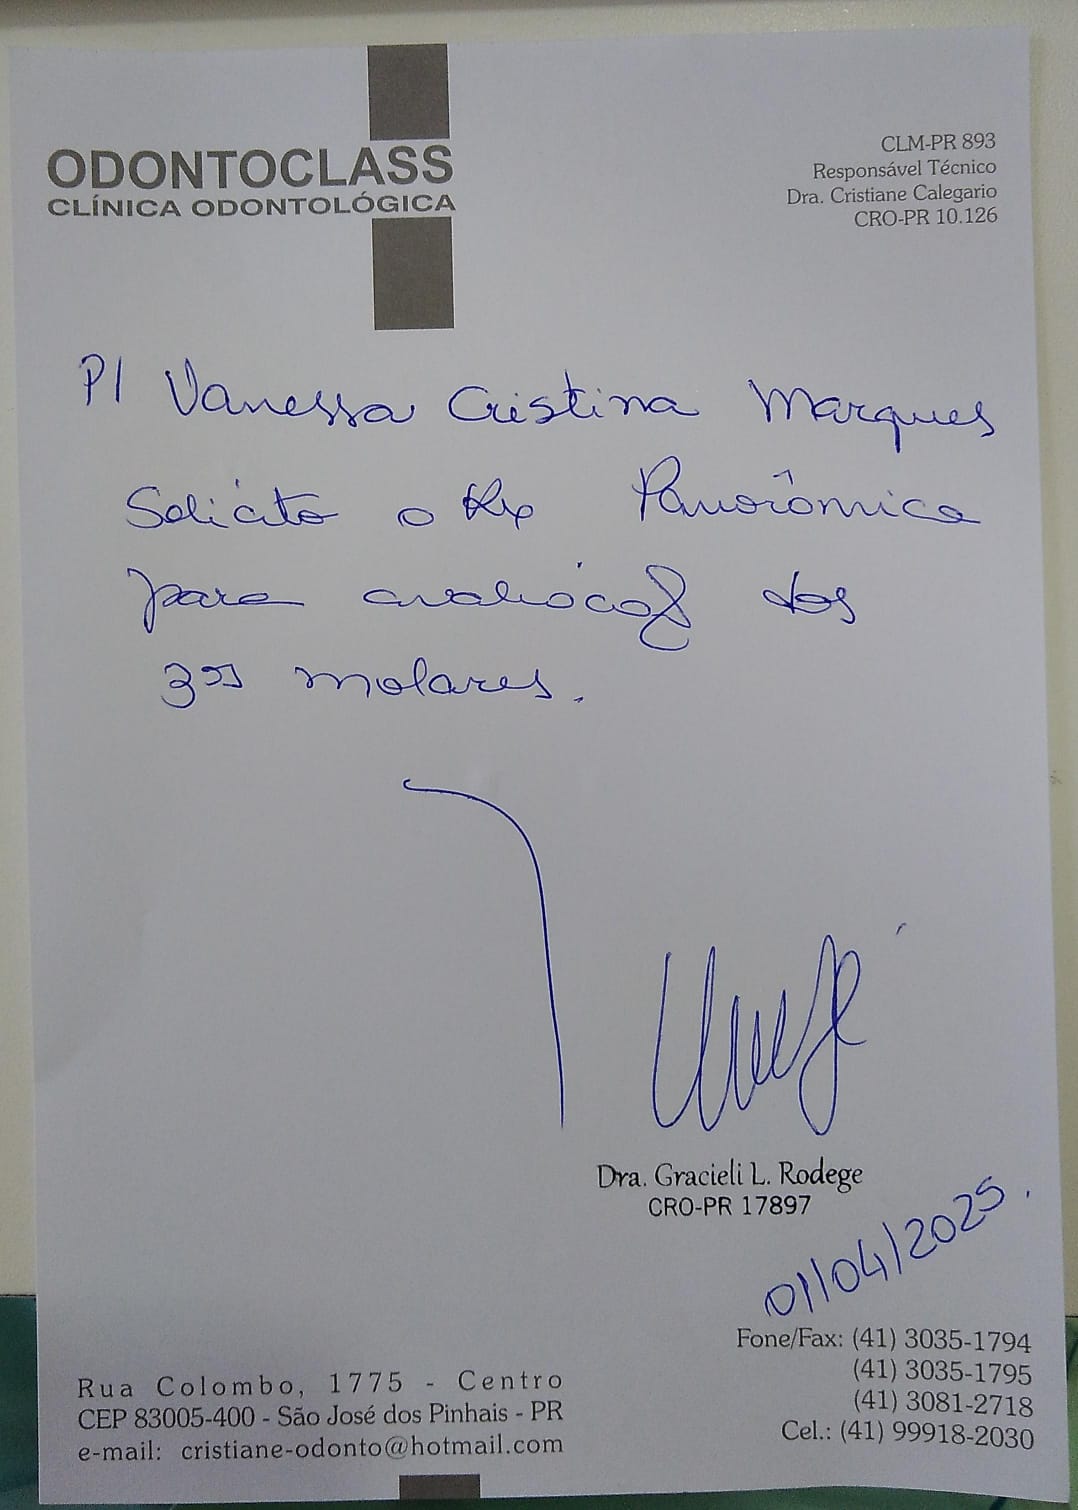 ODONTOCLASS
CLÍNICA ODONTOLÓGICA
CLM-PR 893
Responsável Técnico
Dra. Cristiane Calegario
CRO-PR 10.126
P/ Vanessa Cristina Marques
Solicito o Rx Panorâmica
para avaliação dos
3ºs molares.
Dra. Gracieli L. Rodege
CRO-PR 17897
01/04/2025.
Rua Colombo, 1775 - Centro
CEP 83005-400 - São José dos Pinhais - PR
e-mail: cristiane-odonto@hotmail.com
Fone/Fax: (41) 3035-1794
(41) 3035-1795
(41) 3081-2718
Cel.: (41) 99918-2030